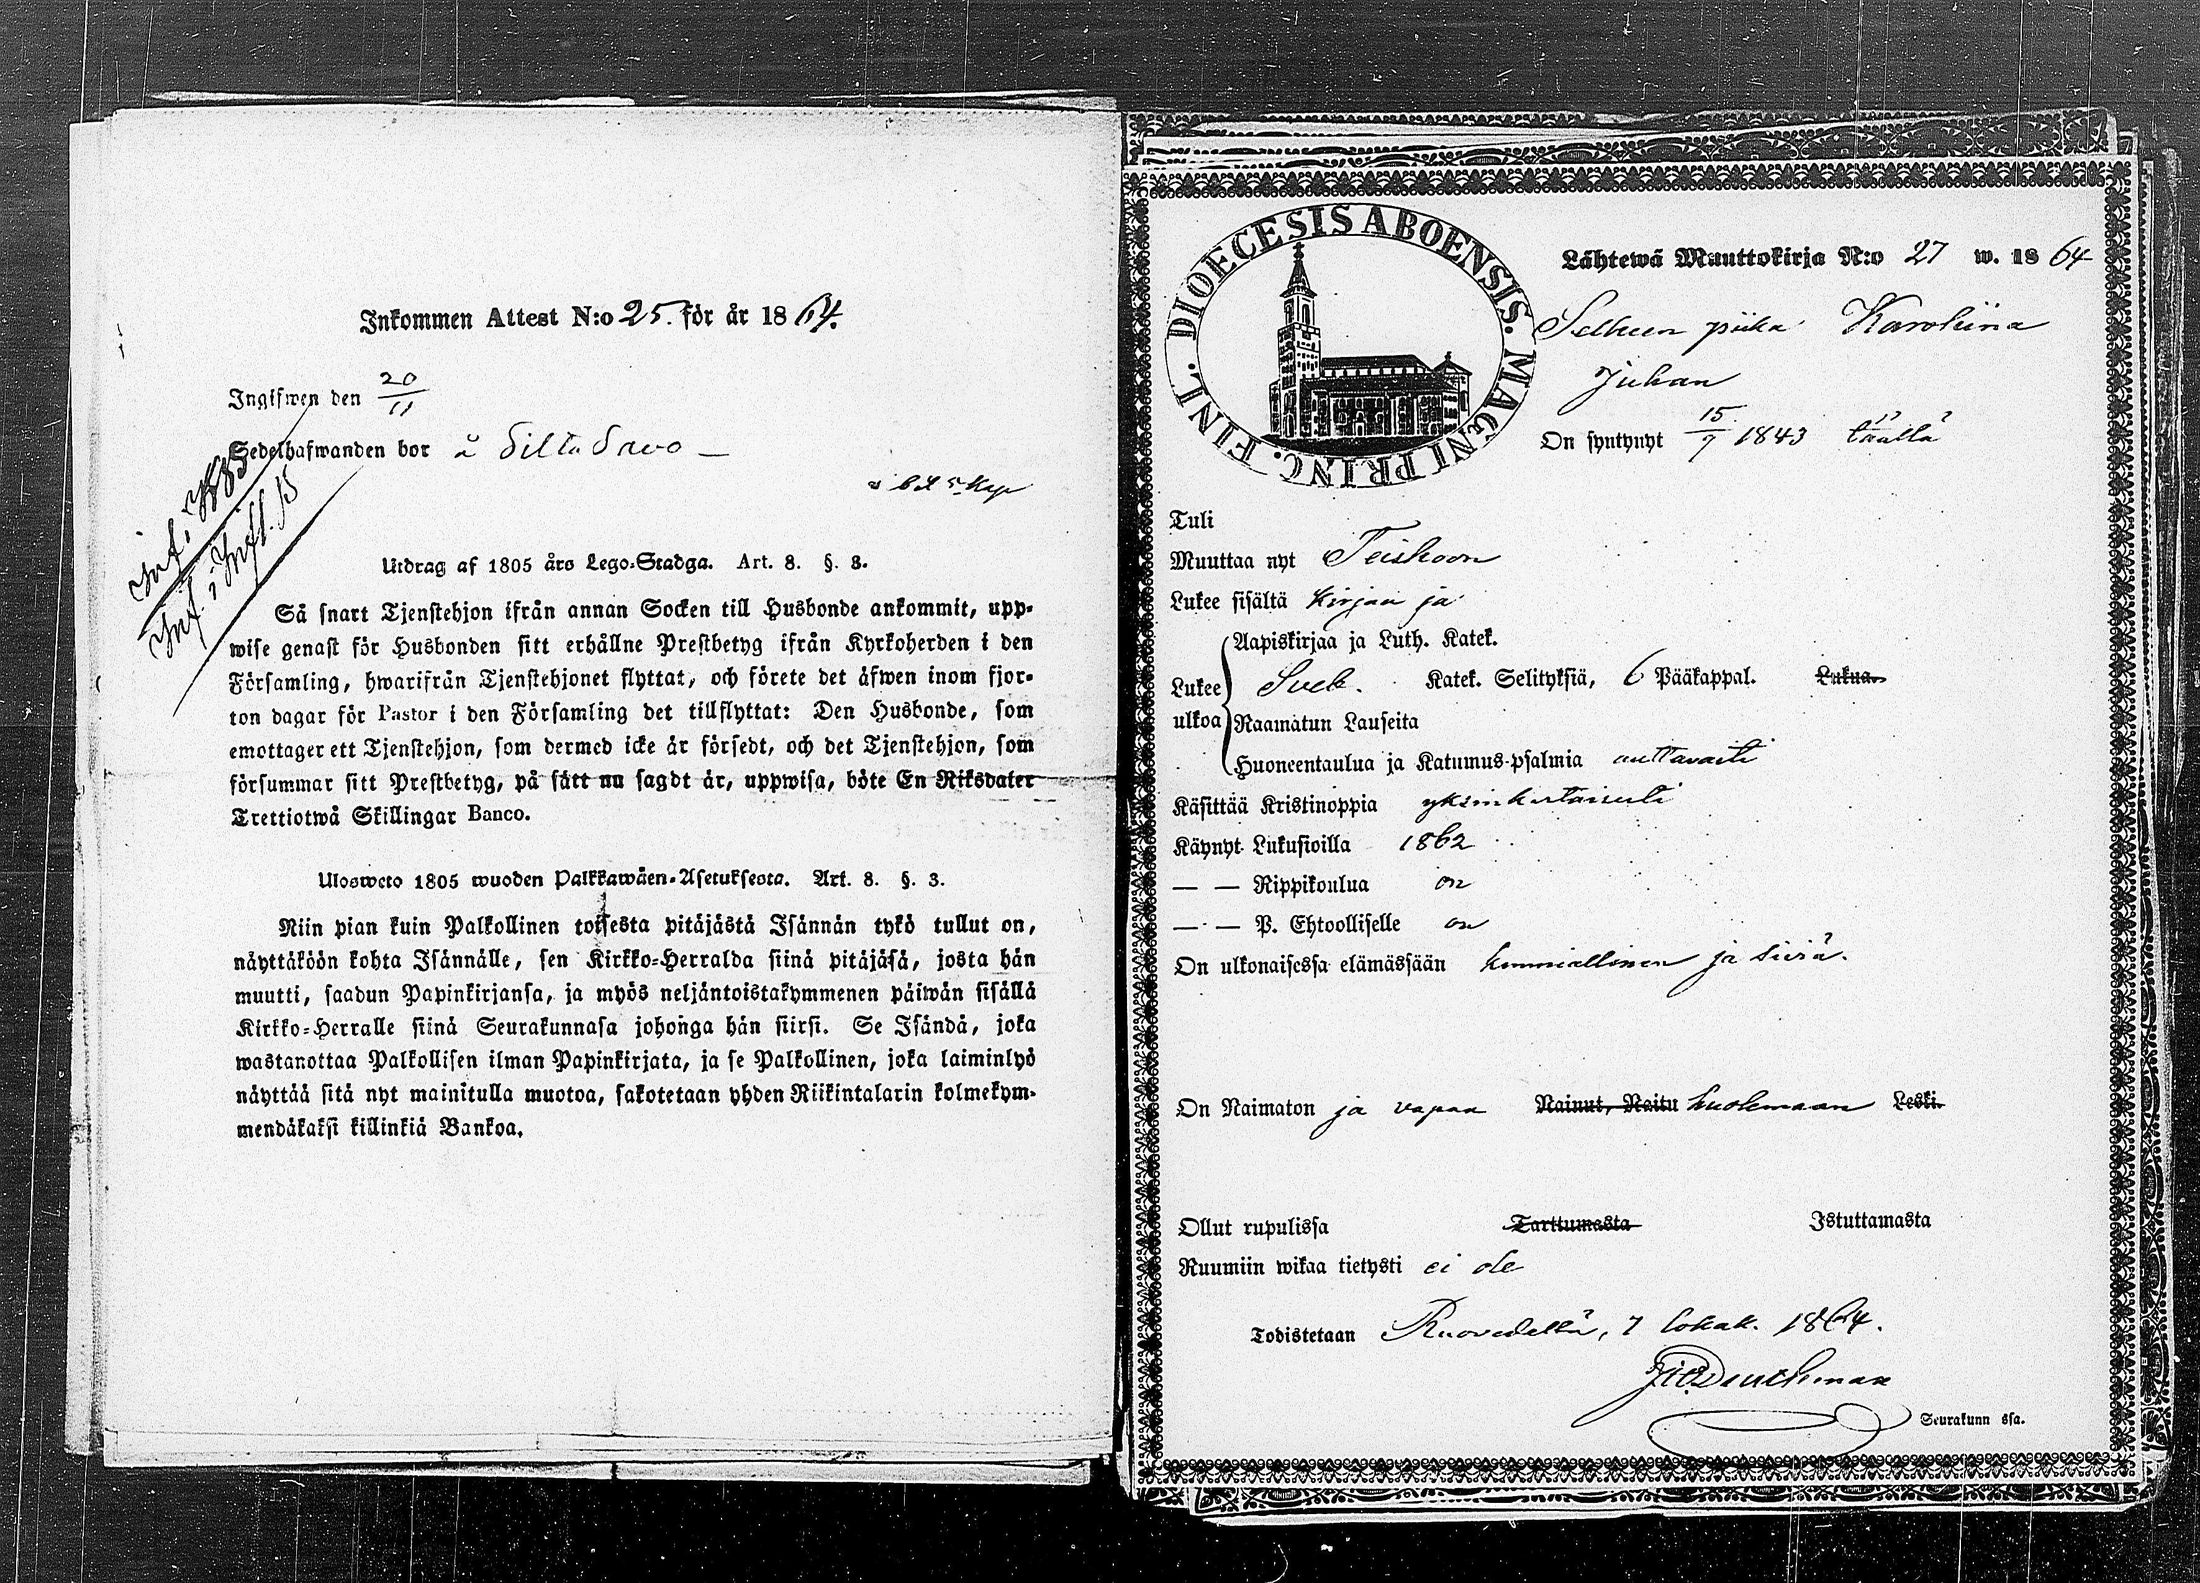 Inkommen Attest N:o 25. för år 1864.
Ingifwen den 20/11
Sedelhafwanden bor å Silta Savo
Inf. i
Inf. i Infl. 15
Utdrag af 1805 års Lego-Stadga. Art. 8. §. 3.
Så snart Tjenstehjon ifrån annan Socken till Husbonde ankommit, upp-
wise genast för Husbonden sitt erhållne Prestbetyg ifrån Kyrkoherden i den
Församling, hwarifrån Tjenstehjonet flyttat, och förete det äfwen inom fjor-
ton dagar för Pastor i den Församling det tillflyttat: Den Husbonde, som
emottager ett Tjenstehjon, som dermed icke är försedt, och det Tjenstehjon, som
försummar sitt Prestbetyg, på sätt nu sagdt är, uppwisa, böte En Riksdaler
Trettiotwå Skillingar Banco.
Ulosweto 1805 wuoden Palkkawäen-Asetuksesta. Art. 8. §. 3.
Niin pian kuin Palkollinen toisesta pitäjästä Isännän tykö tullut on,
näyttäköön kohta Isännälle, sen Kirkko-Herralda siinä pitäjäsä, josta hän
muutti, saadun Papinkirjansa, ja myös neljäntoistakymmenen päiwän sisällä
Kirkko-Herralle siinä Seurakunnasa johonga hän siirsi. Se Isändä, joka
wastanottaa Palkollisen ilman Papinkirjata, ja se Palkollinen, joka laiminlyö
näyttää sitä nyt mainitulla muotoa, sakotetaan yhden Riikintalarin kolmekym-
mendäkaksi killinkiä Bankoa.
FINL. DIOECESIS ABOENSIS. MAGNI PRINC.
Lähtewä Muuttokirja N:o 27 w. 1864
Selkeen piika Karoliina
Juhan
On syntynyt 15/7 1843 täällä
Tuli
Muuttaa nyt Teiskoon
Lukee sisältä kirjan ja
Aapiskirjaa ja Luth. Katek.
Lukee ulkoa Sveb. Katek. Selityksiä, 6 Pääkappal. Lukua.
Raamatun Lauseita
Huoneentaulua ja Katumus-psalmia auttavasti
Käsittää Kristinoppia yksinkertaisesti
Käynyt Lukusioilla 1862
— — Rippikoulua on
— — P. Ehtoolliselle on
On ulkonaisessa elämässään kunniallinen ja siviä.
On Naimaton ja vapaa Nainut, Naitu huolemaan Leski.
Ollut rupulissa Tarttumasta Istuttamasta
Ruumiin wikaa tietysti ei ole
Todistetaan Ruovedellä, 7 lokak. 1864.
Seurakunn ssa.